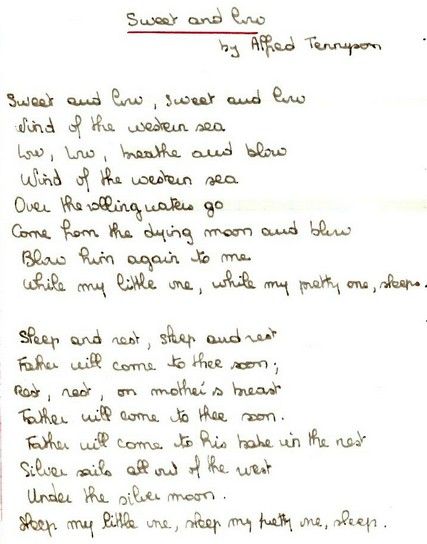 Sweet and low
by Alfred Tennyson
Sweet and low, sweet and low
Wind of the western sea
Low, low, breathe and blow
Wind of the western sea
Over the rolling waters go
Come from the dying moon and blow
Blow him again to me
While my little one, while my pretty one, sleeps.
Sleep and rest, sleep and rest
Father will come to thee soon;
Rest, rest, on mother's breast
Father will come to thee soon.
Father will come to his babe in the nest
Silver sails all out of the west
Under the silver moon.
Sleep my little one, sleep my pretty one, sleep.